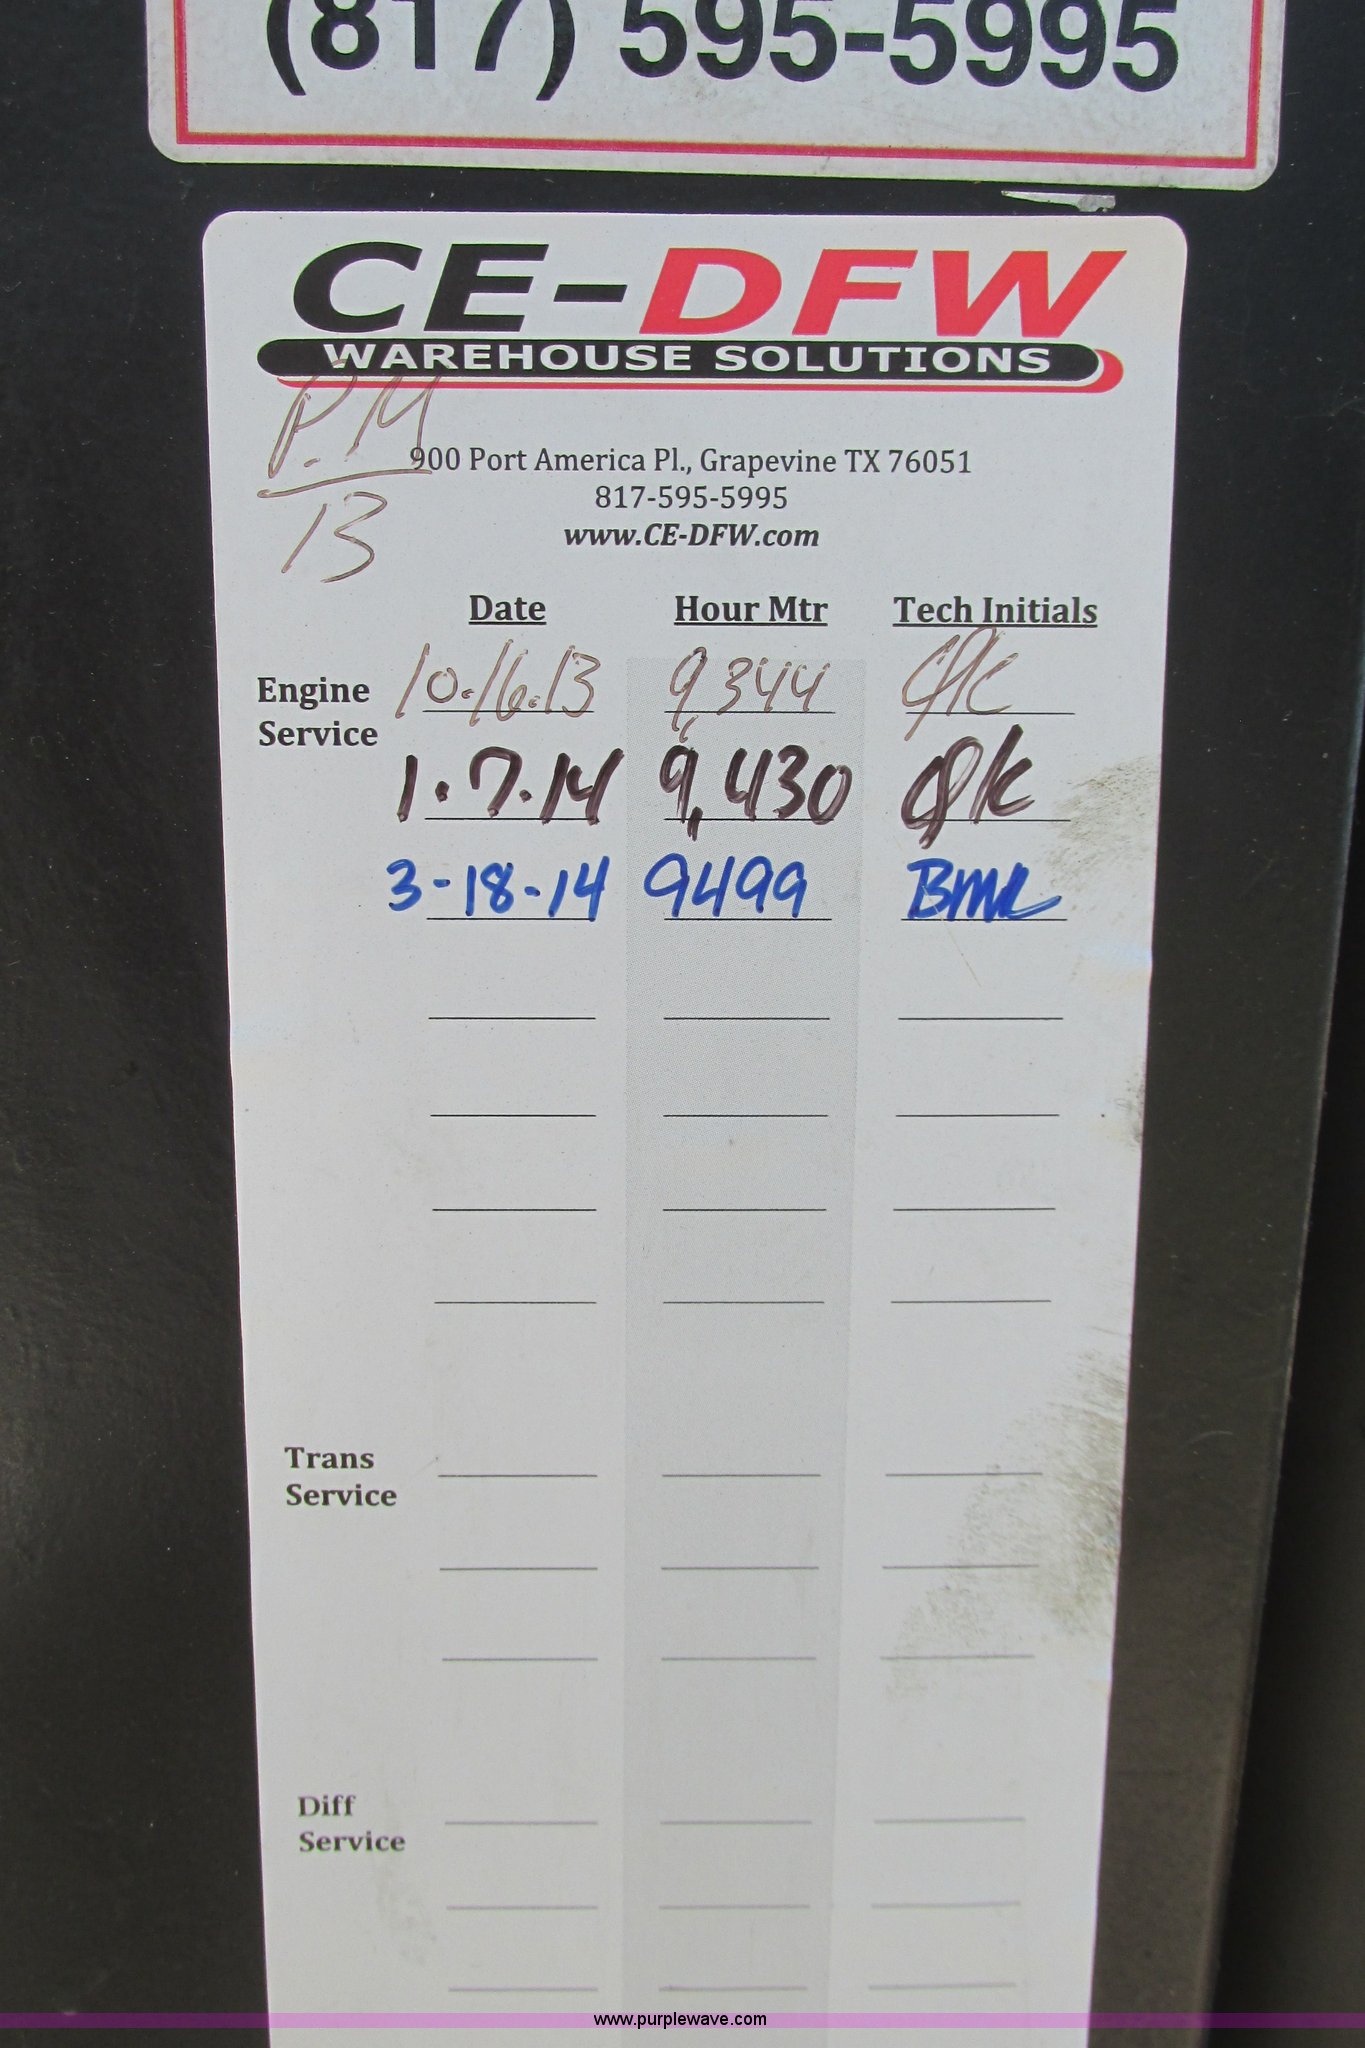 (817) 595-5995
CE-DFW
WAREHOUSE SOLUTIONS
P.M
B
900 Port America Pl., Grapevine TX 76051
817-595-5995
www.CE-DFW.com
Date Hour Mtr Tech Initials
Engine Service
10.16.13 9,344
1.7.14 9,430
3-18-14 9499
Trans
Service
Diff
Service
www.purplewave.com